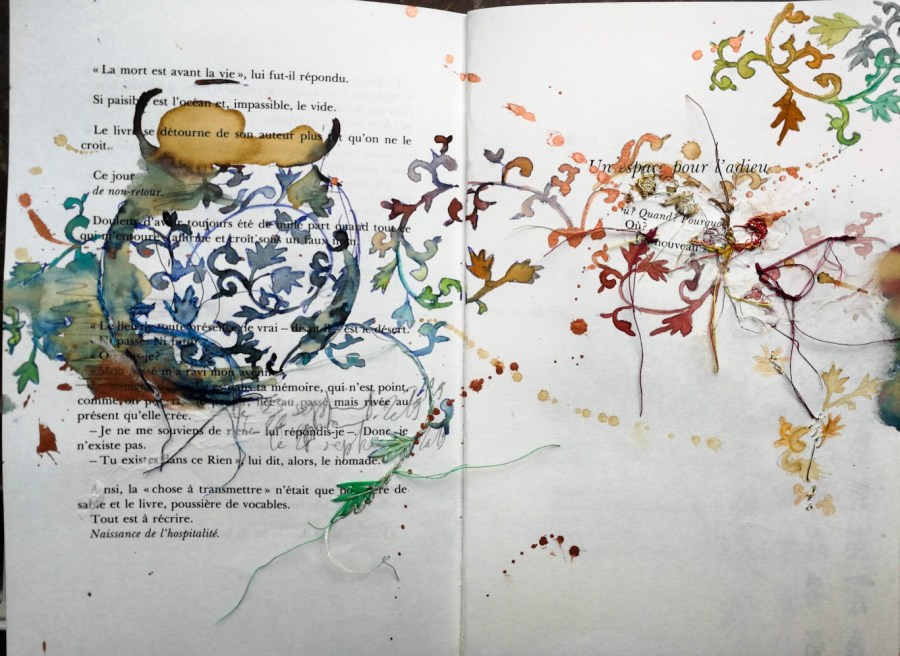 « La mort est avant la vie », lui fut-il répondu.
Si paisible est l'océan et, impassible, le vide.
Le livre se détourne de son auteur plus qu'on ne le
croit.
Ce jour
de non-retour.
Douleur d'avoir toujours été de nulle part quand tout ce
qui m'entoure s'affirme et croît sous un faux nom.
« Le lieu de toute présence vraie – disait-il – est le désert.
Ni
-je?
– Mon passé m'a ravi mon avenir.
dans ta mémoire, qui n'est point,
comme on au passé mais rivée au
présent qu'elle crée.
– Je ne me souviens de rien – lui répondis-je – Donc je
n'existe pas.
– Tu existes dans ce Rien », lui dit, alors, le nomade.
Ainsi, la « chose à transmettre » n'était que poussière de
sable et le livre, poussière de vocables.
Tout est à récrire.
Naissance de l'hospitalité.
Un espace pour l'adieu
Quand? Pourquoi
Où?
nouveau